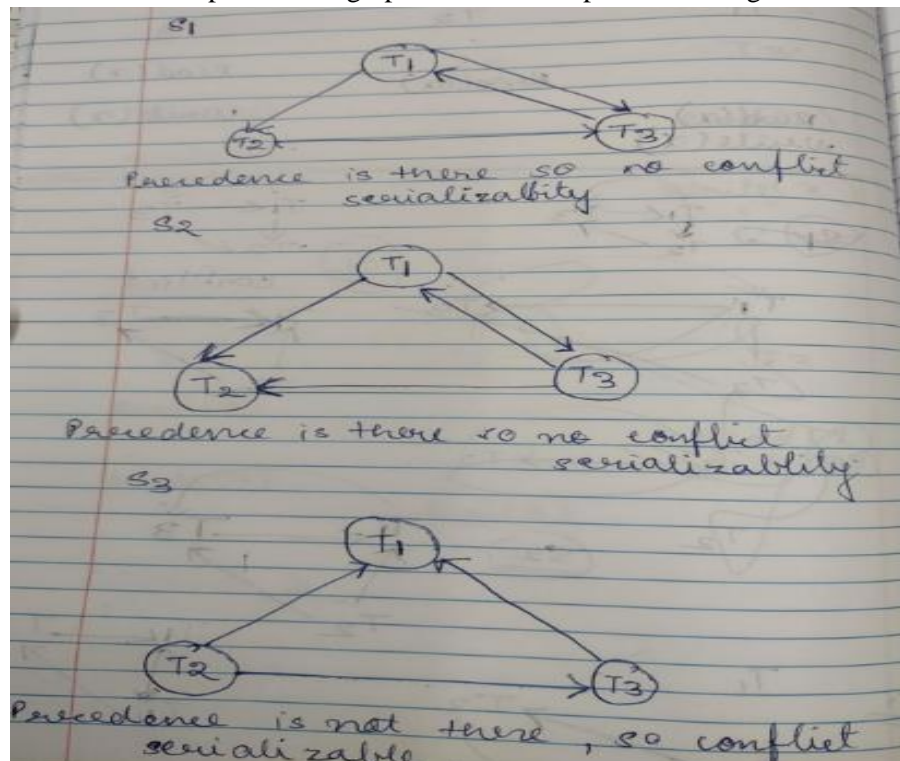 S1
T1
T2
T3
Precedence is there so no conflict
serializalbity
S2
T1
T2
T3
Precedence is there so no conflict
serializablity
S3
T1
T2
T3
Precedence is not there, so conflict
serializable